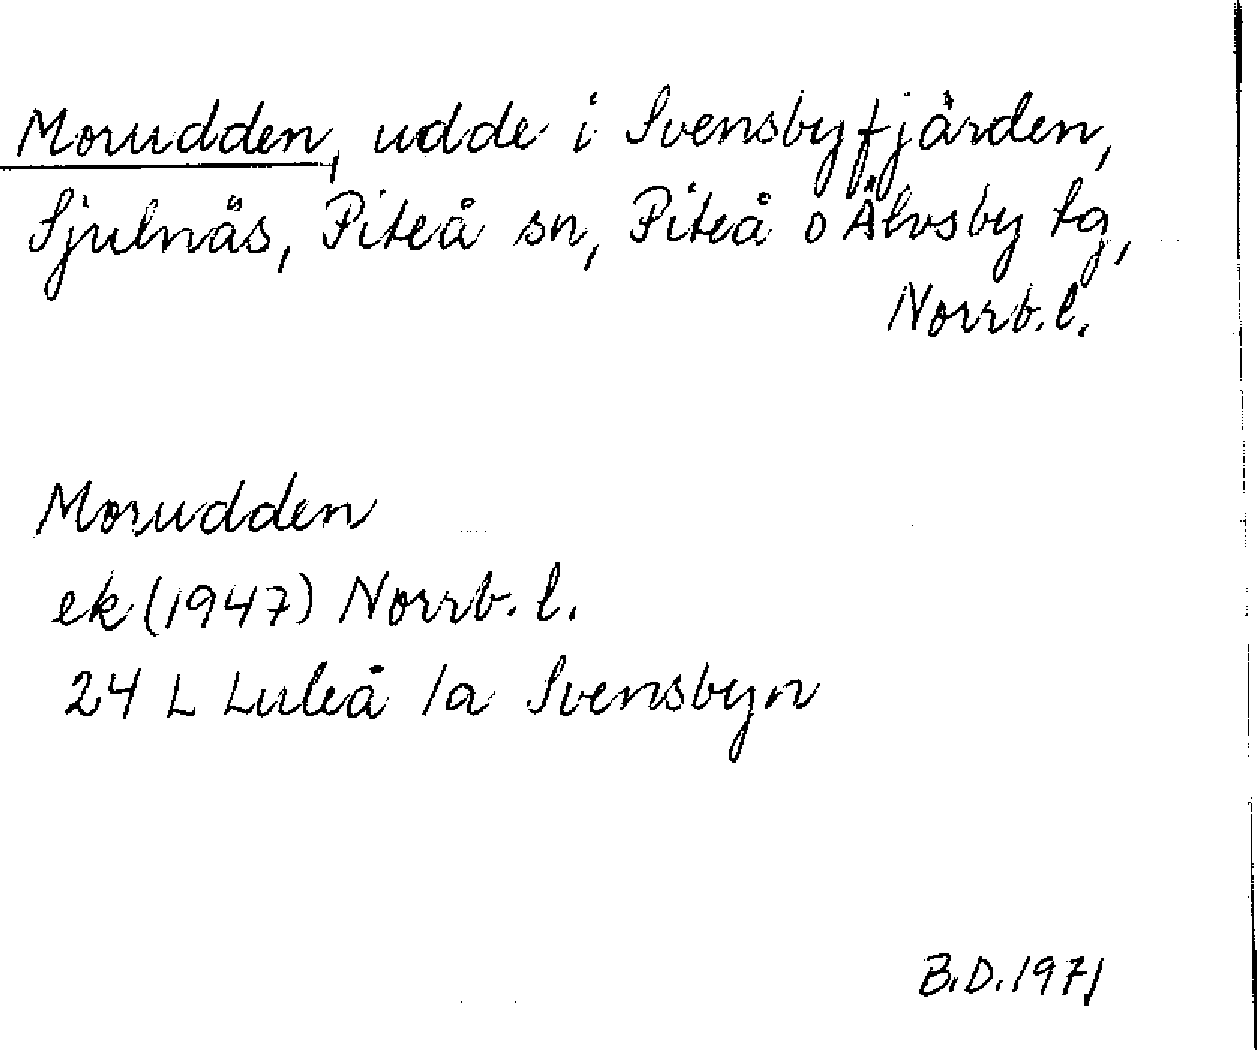 Morudden, udde i Svensbyfjärden,
Sjulnäs, Piteå sn, Piteå o Älvsby tg,
Norrb. l.
Morudden
ek (1947) Norrb. l.
24 L Luleå 1a Svensbyn
B.D. 1971